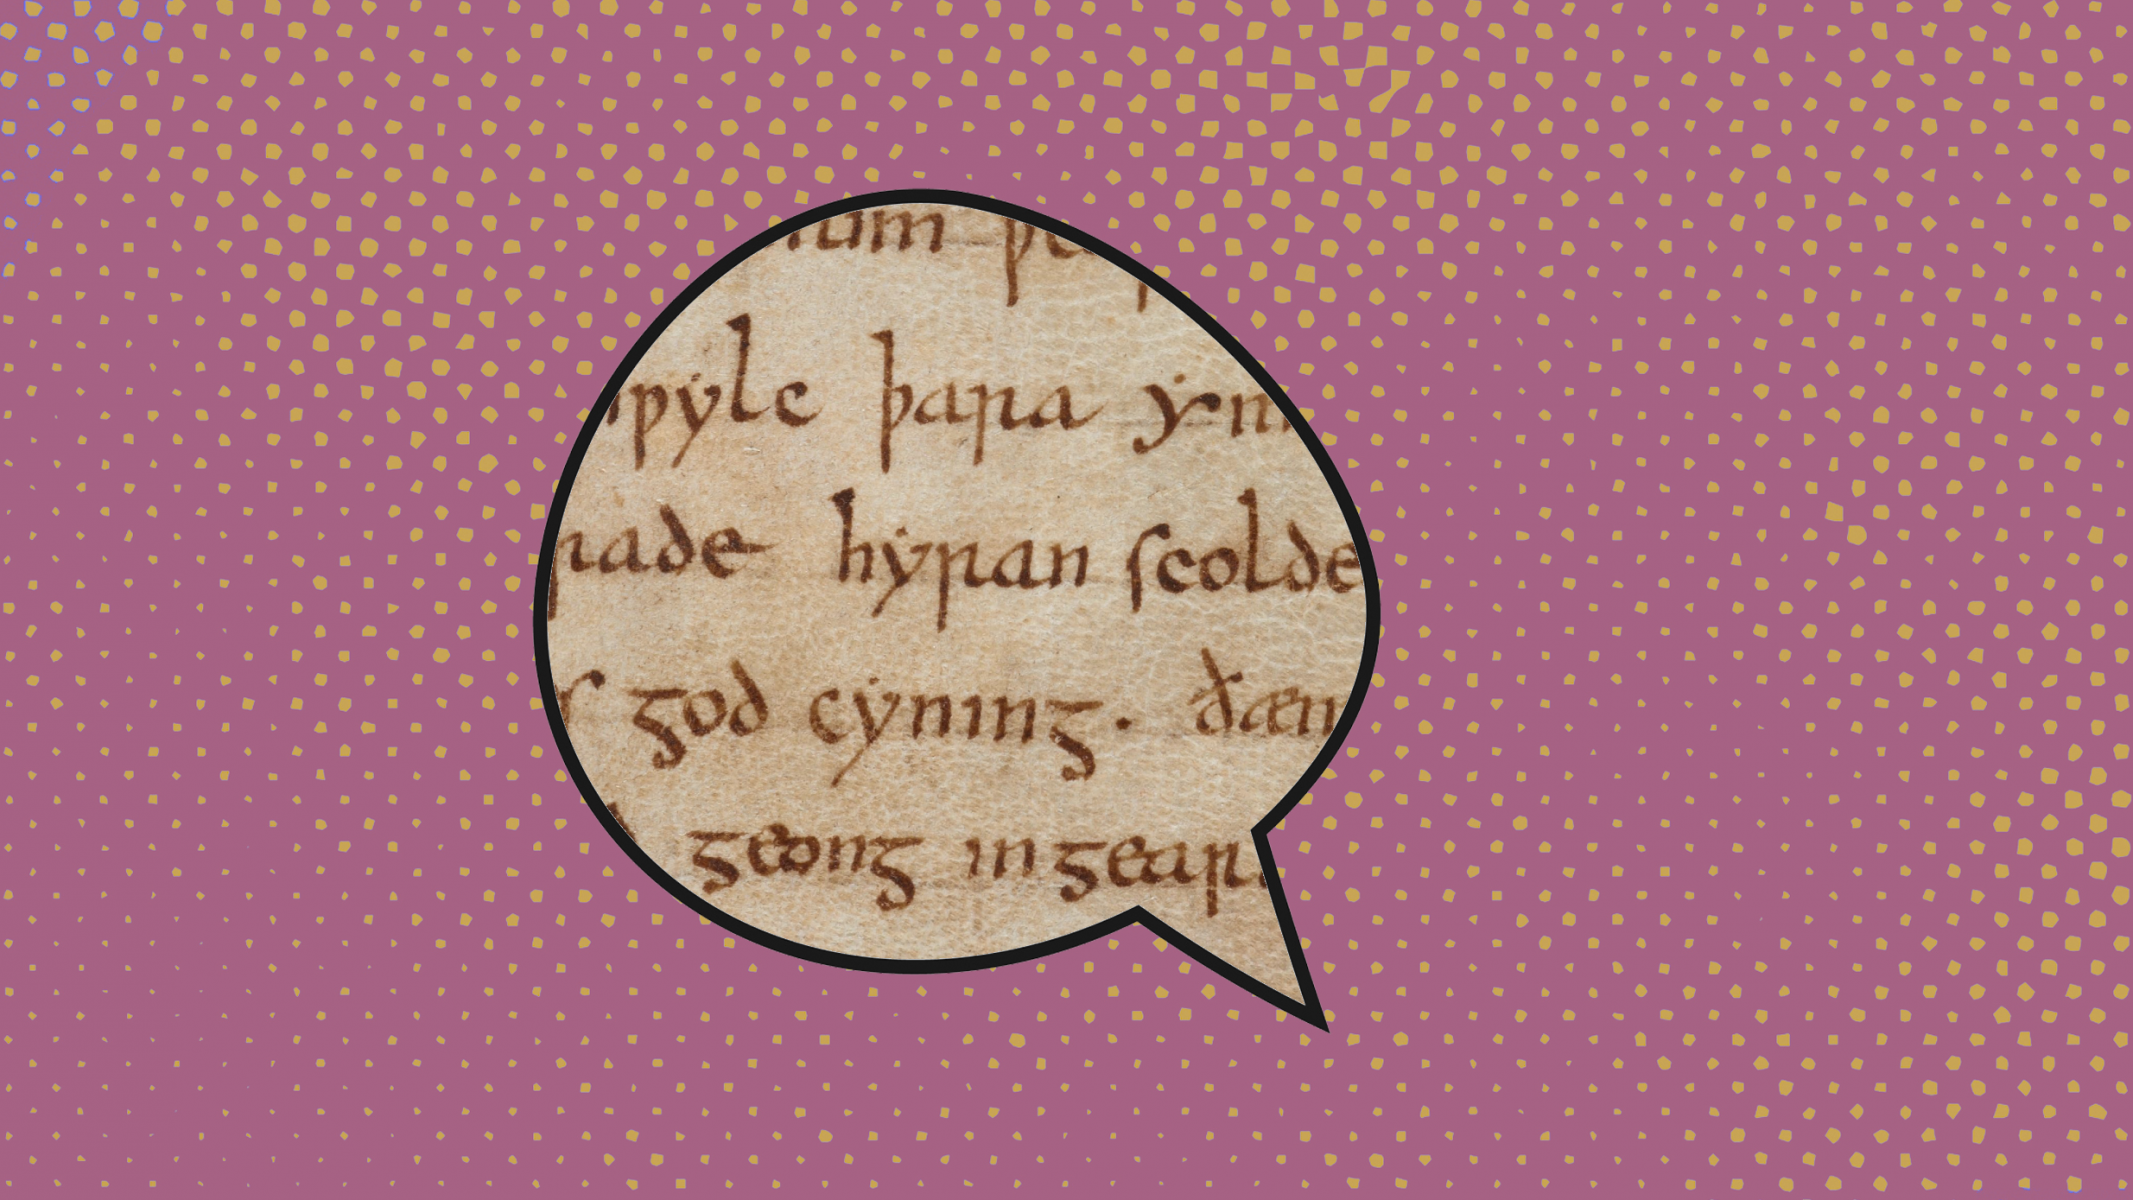 num ƿe
ƿylc þara ym
rade hyran scolde
god cyning. ðæm
geong in gear